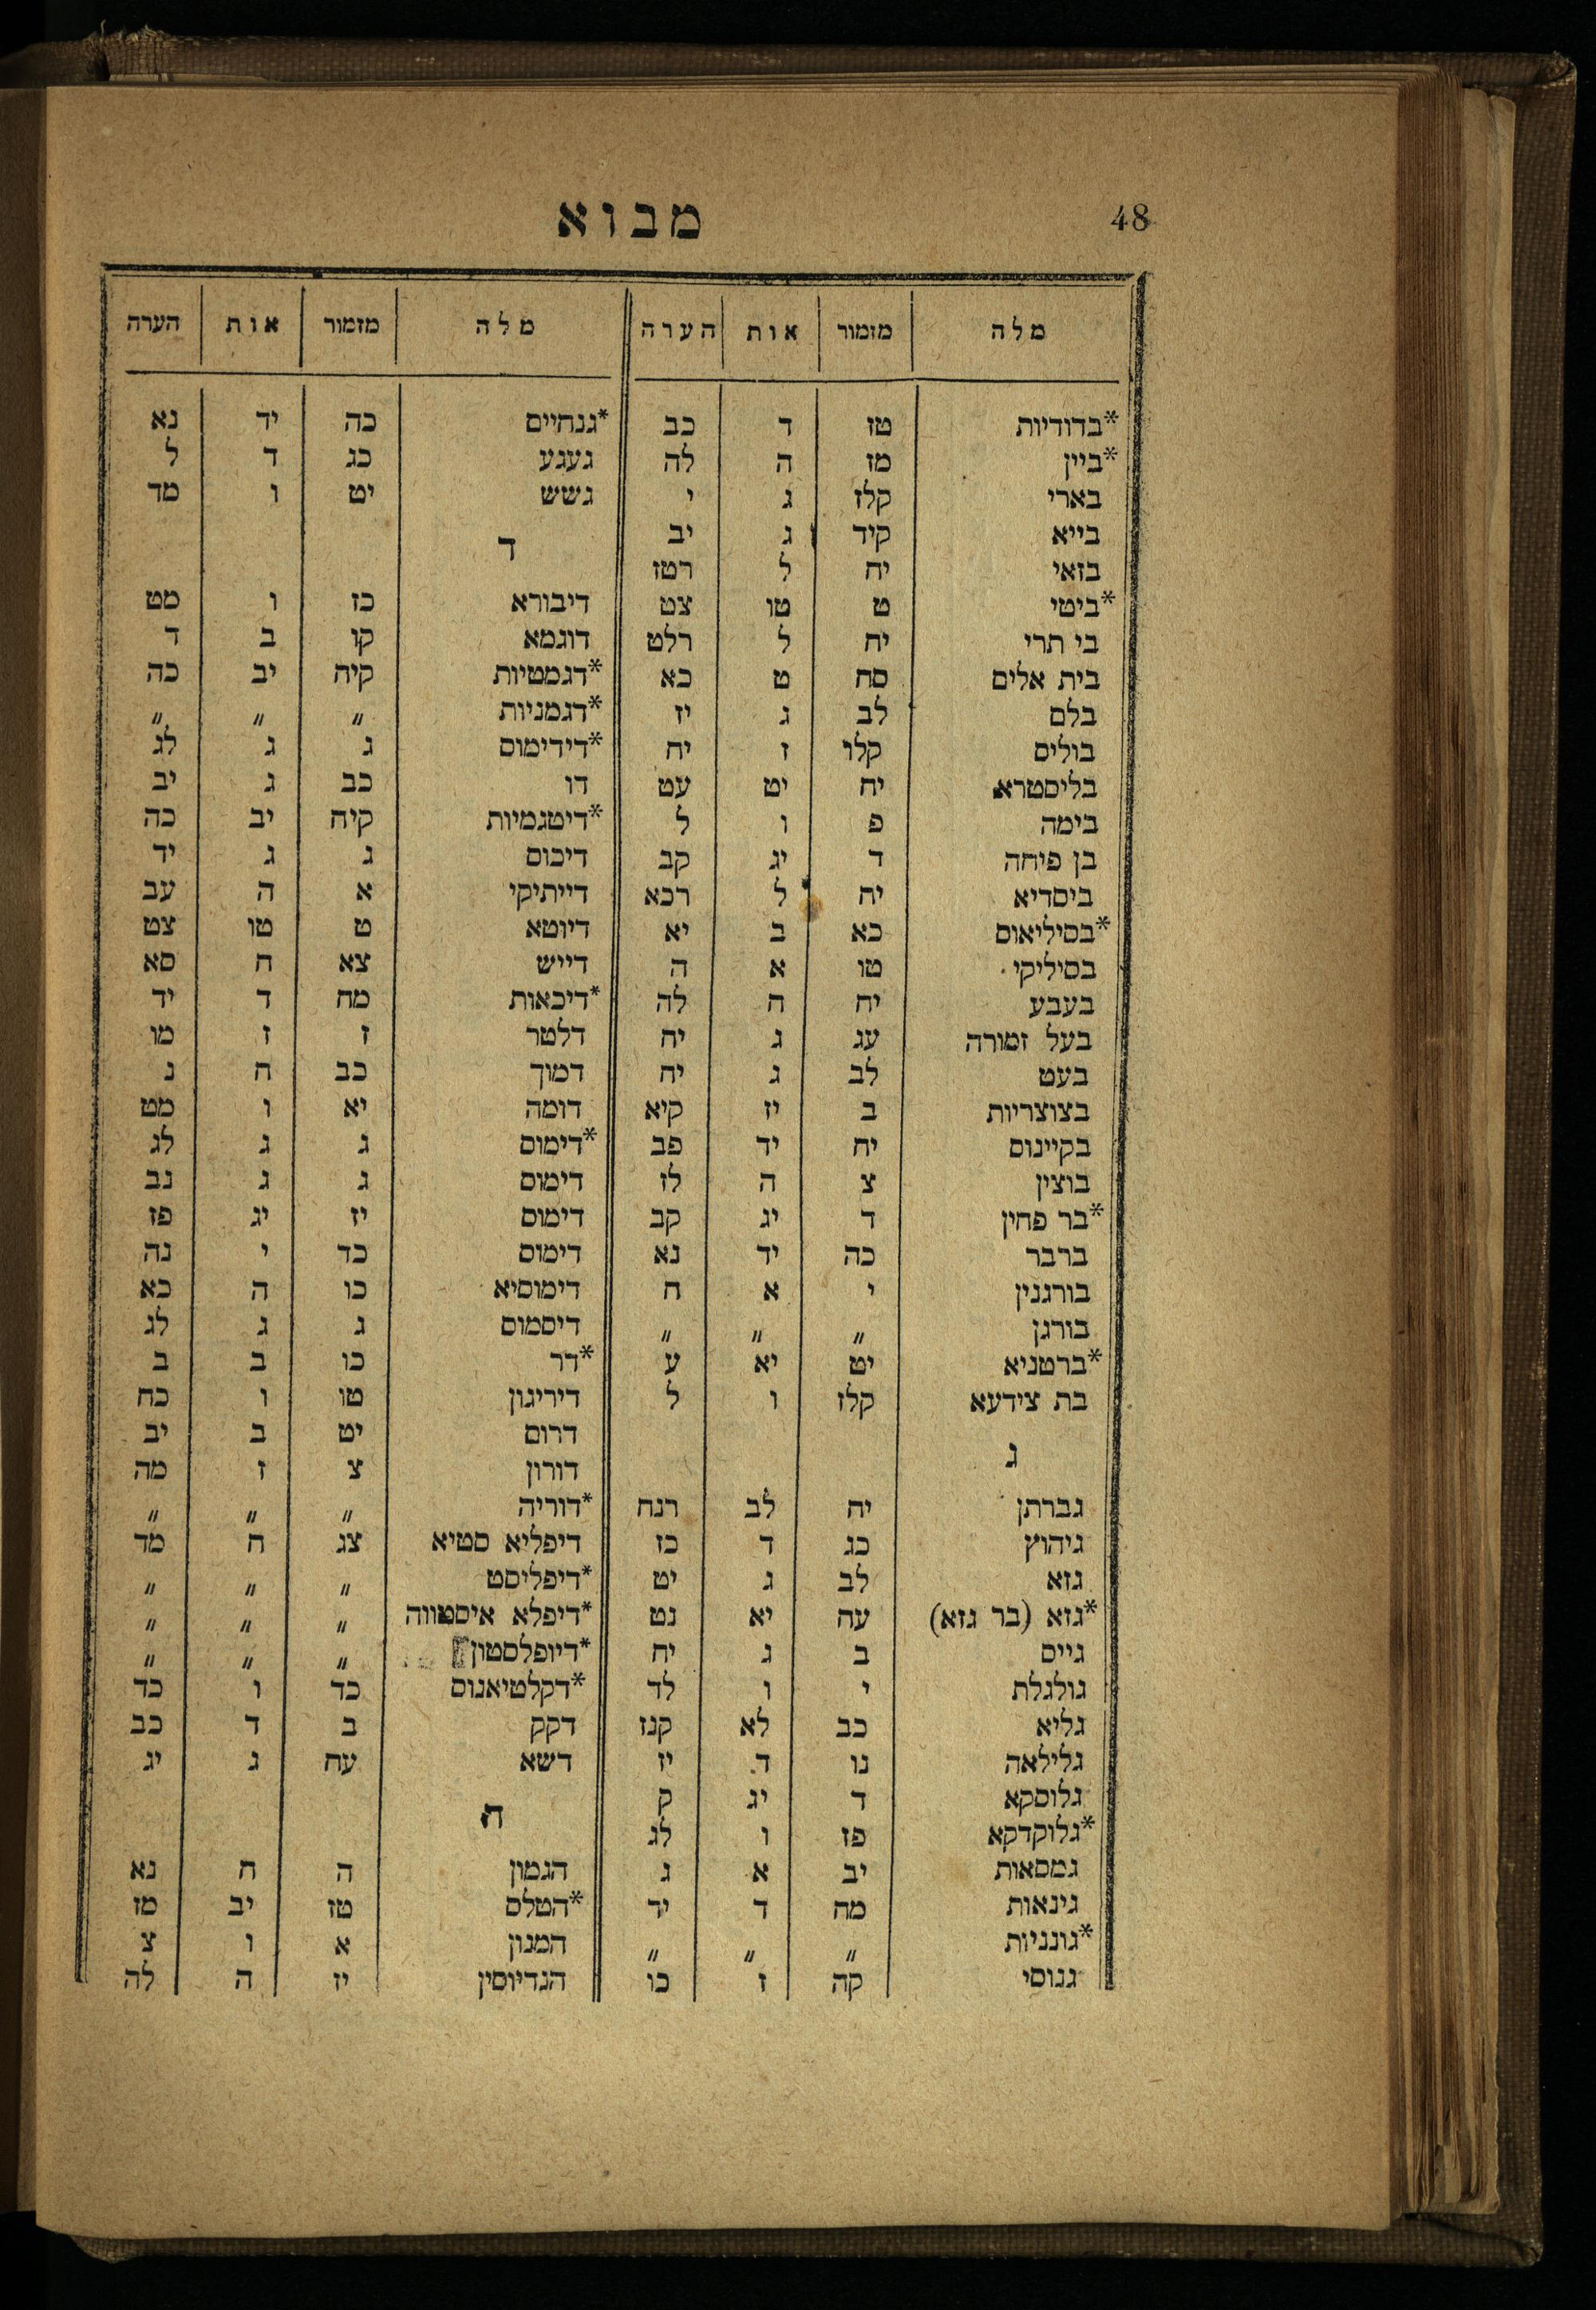 48 מבוא
מלה מזמור אות הערה
*בדודיות טז ד כב
*ביין מז ה לה
בארי קלז ג י
בייא קיד ג יב
בזאי יח ל רטז
*ביטי ט טו צט
בי תרי יח ל רלט
בית אלים סח ט כא
בלם לב ג יז
בולים קלו ז יח
בליסטרא יח יט עט
בימה פ ו ל
בן פיחה ד יג קב
ביסדיא יח ל רכא
*בסיליאוס כא ב יא
בסיליקי טו א ה
בעבע יח ח לה
בעל זמורה עג ג יח
בעט לב ג יח
בצוצריות ב יז קיא
בקיינוס יח יד פב
בוצין צ ה לז
*בר פחין ד יג קב
ברבר כה יד נא
בורגנין י א ח
בורגן " " "
*ברטניא יט יא ע
בת צידעא קלז ו ל
ג
גברתן יח לב רנח
גיהוץ כג ד כז
גזא לב ג יט
*גזא (בר גזא) עח יא נט
גייס ב ג יח
גולגלת י ו לד
גליא כב לא קנז
גלילאה נו ד יז
גלוסקא ד יג ק
*גלוקדקא פז ו לג
גמסאות יב א ג
גינאות מח ד יד
*גונניות " " "
גנוסי קה ז כו
מלה מזמור אות הערה
*גנחיים כה יד נא
געגע כג ד ל
גשש יט ו מד
ד
דיבורא כז ו מט
דוגמא קו ב ד
*דגמטיות קיח יב כה
*דגמניות " " "
*דידימוס ג ג לג
דו כב ג יב
*דיטגמיות קיח יב כה
דיכוס ג ג יד
דייתיקי א ה עב
דיוטא ט טו צט
דייש צא ח סא
*דיכאות מח ד יד
דלטר ז ז מו
דמוך כב ח נ
דומה יא ו מט
*דימוס ג ג לג
דימוס ג ג נב
דימוס יז יג פז
דימוס כד י נה
דימוסיא כו ה כא
דיסמוס ג ג לג
*דר כו ב ב
דיריגון טו ו כח
דרום יט ב יב
דורון צ ז מה
*דוריה " " "
דיפליא סטיא צג ח מד
*דיפליסט " " "
*דיפלא איסטווה " " "
*דיופלסטון " " "
*דקלטיאנוס כד ו כד
דקק ב ד כב
דשא עח ג יג
ה
הגמון ה ח נא
*הטלס טז יב מז
המנון א ו צ
הנדיוסין יז ה לה